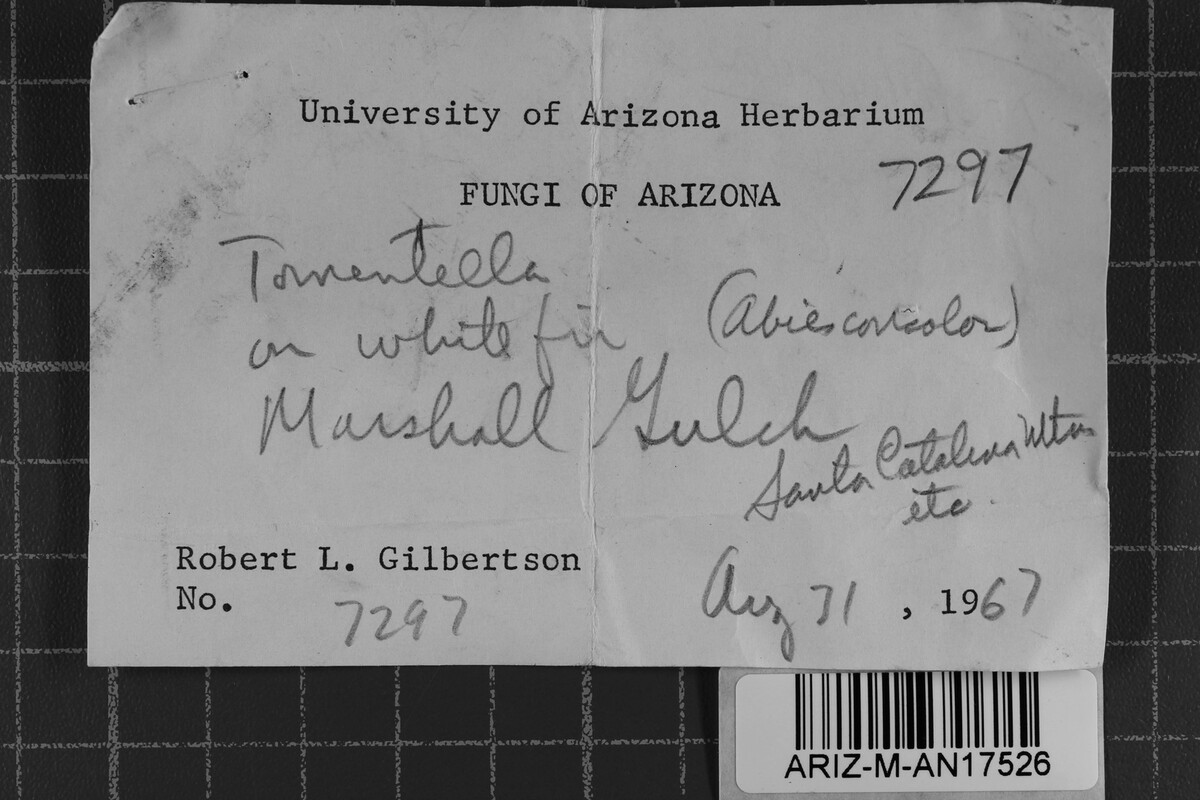 University of Arizona Herbarium
7297
FUNGI OF ARIZONA
Tomentella
on white fir (Abies concolor)
Marshall Gulch
Santa Catalina Mtns
etc.
Robert L. Gilbertson
No. 7297
Aug 31, 1967
ARIZ-M-AN17526